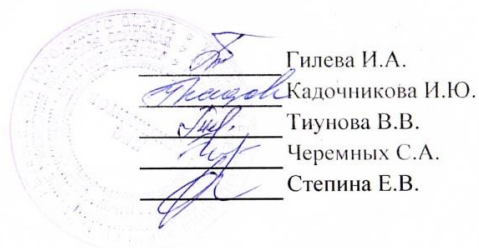 Гилева И.А.
Кадочникова И.Ю.
Тиунова В.В.
Черемных С.А.
Степина Е.В.